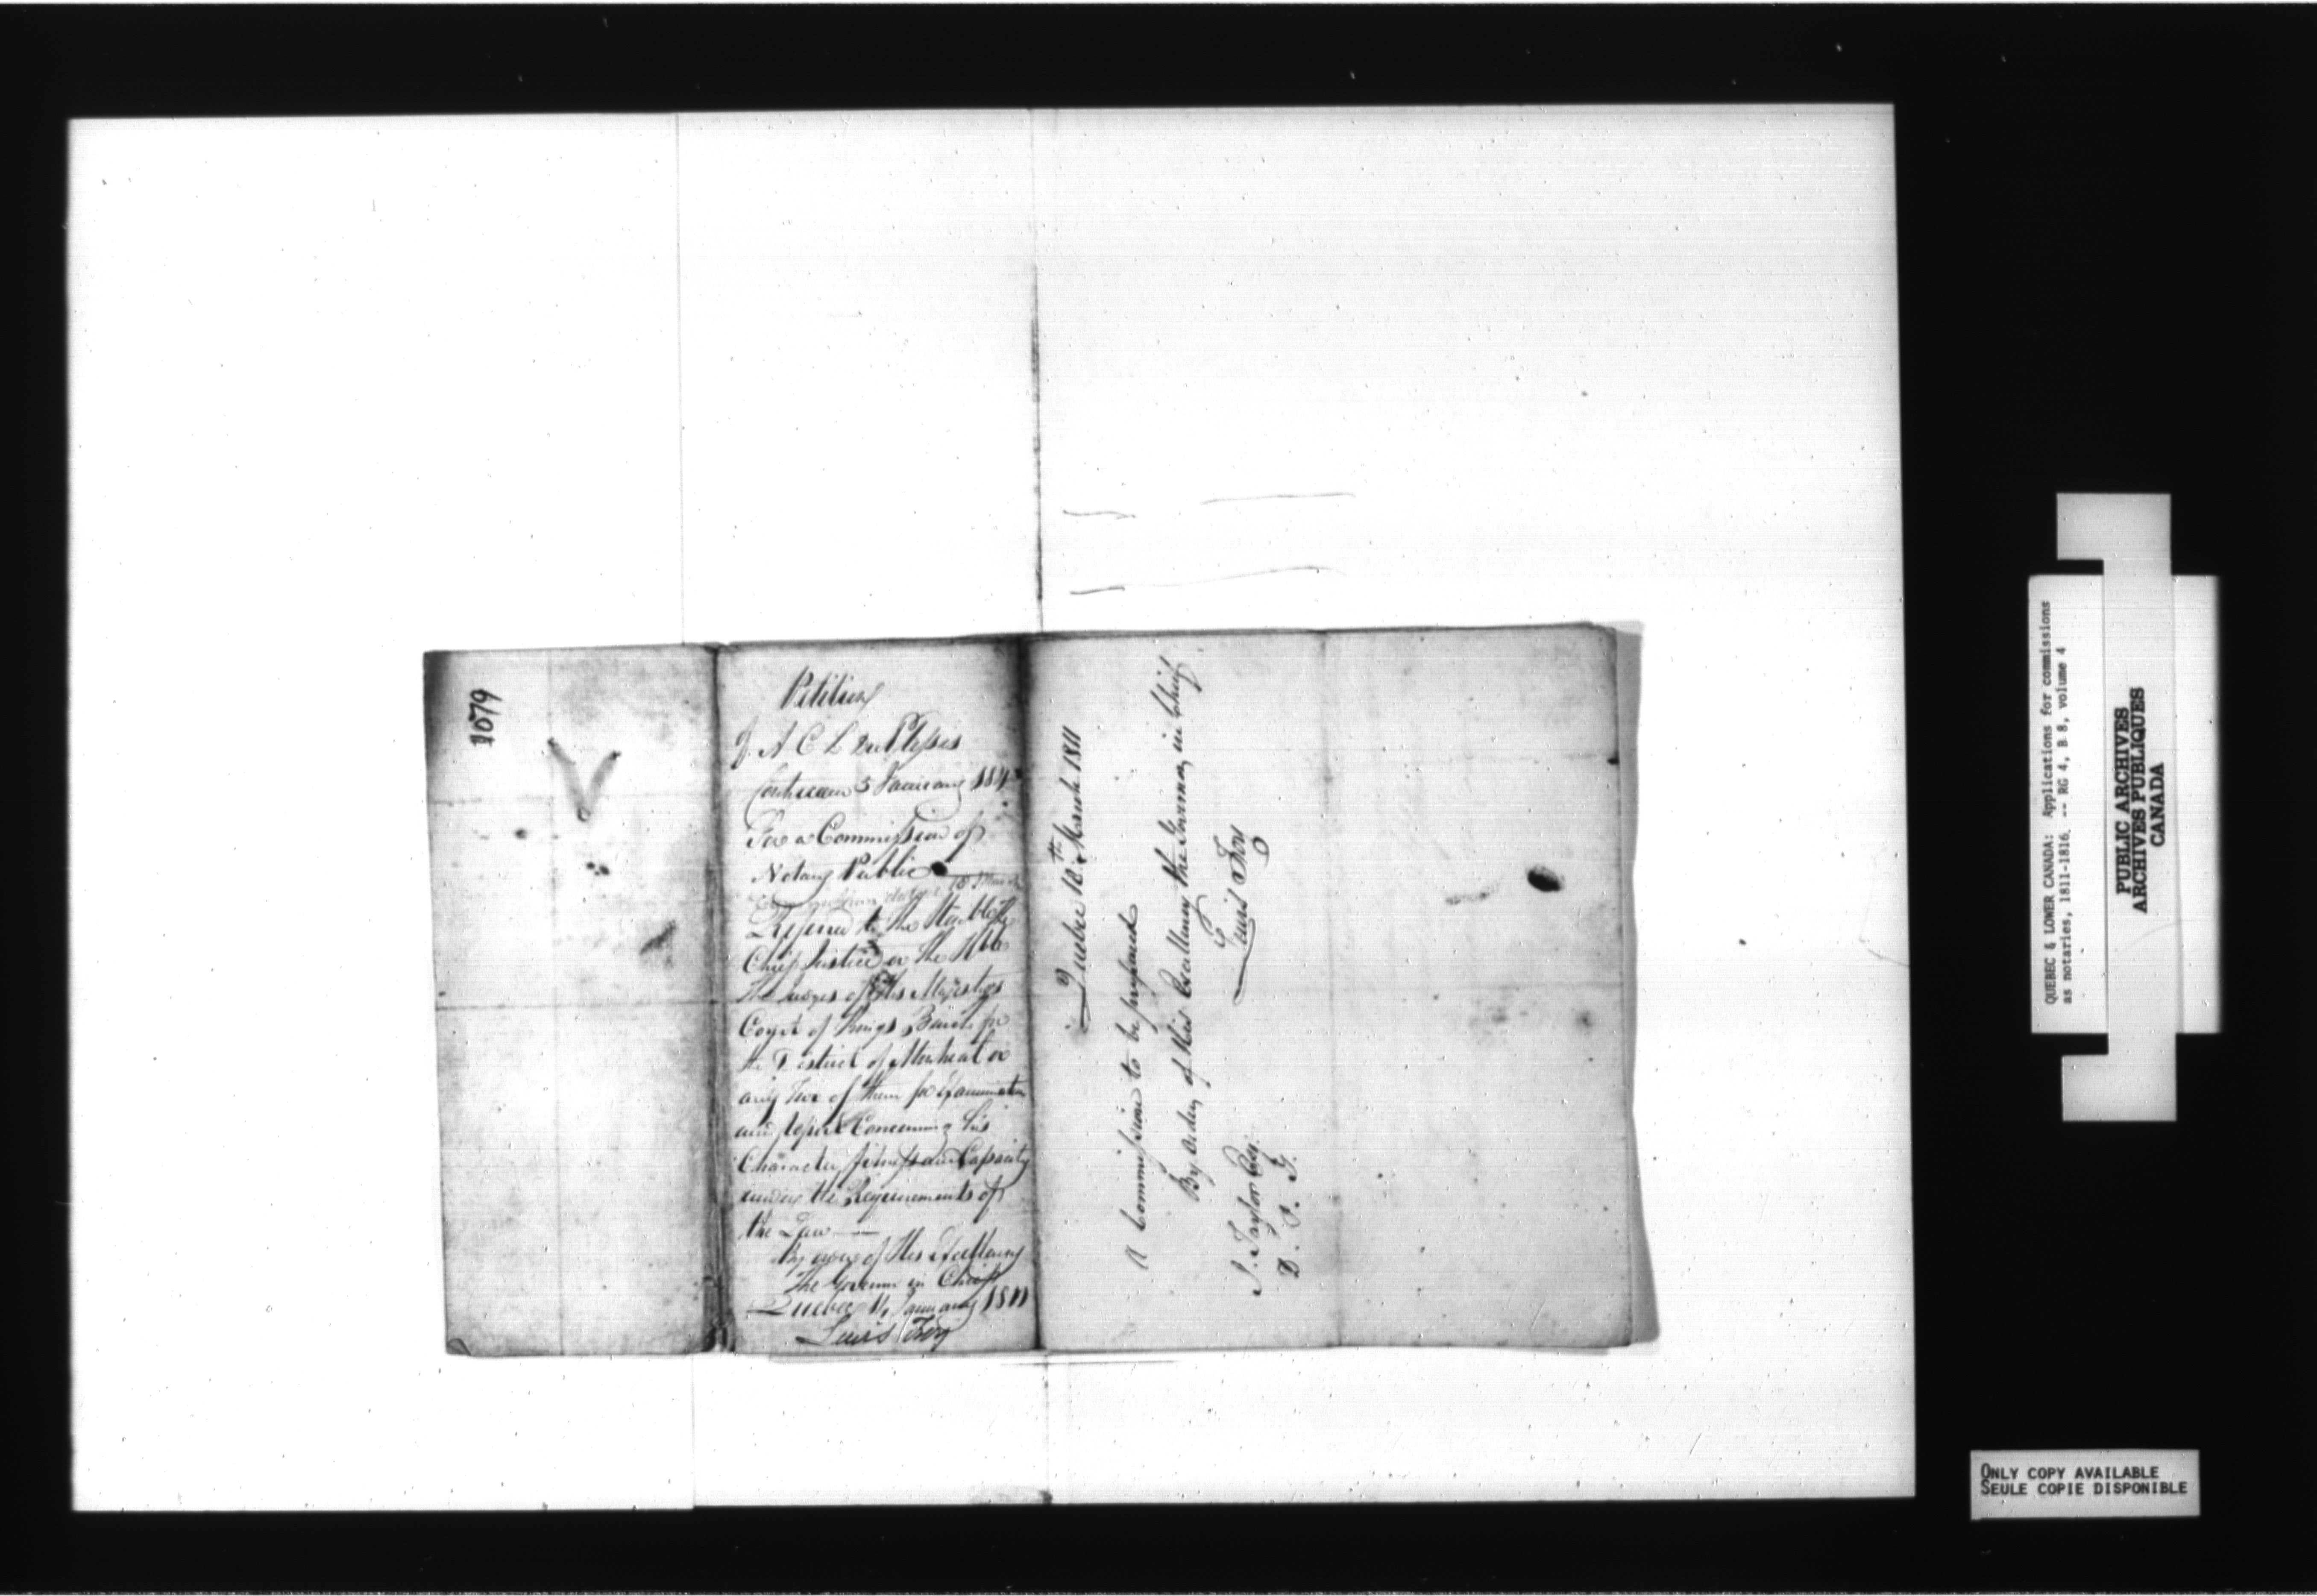 1079
Petition
J. A C L Duplessis
Contrecœur 5 January 1811
For a Commission of
Notary Public
dated 18 March
Referred to the Honble the
Chief Justice or the Hble
the Judges of His Majestys
Court of Kings Bench for
the District of Montreal or
any Two of them for Examination
and Report Concerning his
Character, fitness and Capacity
under the Requirements of
the Law —
By order of His Excellency
The Governor in Chief
Quebec January 1811
Lewis Foy
Quebec 18th March 1811
A Commission to be prepared
By Order, of His Excellency the Governor, in Chief
Lewis Foy
J. Taylor Esq:
D. P. S.
QUEBEC & LOWER CANADA: Applications for commissions
as notaries, 1811-1816. -- RG 4, B 8, volume 4
PUBLIC ARCHIVES
ARCHIVES PUBLIQUES
CANADA
ONLY COPY AVAILABLE
SEULE COPIE DISPONIBLE